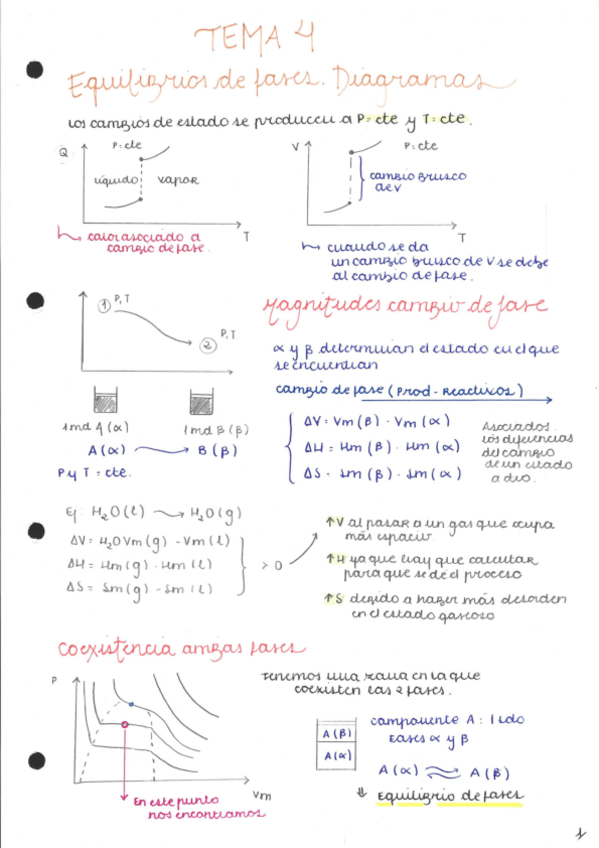 TEMA 4
Equilibrios de fases. Diagramas
Los cambios de estado se producen a P=cte y T=cte.
Q P=cte
líquido vapor
T
calor asociado a
cambio de fase.
V P=cte
cambio brusco
de V
T
cuando se da
un cambio brusco de V se debe
al cambio de fase.
① P,T
② P,T
1 mol A(α) 1 mol B(β)
A(α) → B(β)
P y T = cte.
Magnitudes cambio de fase
α y β determinan el estado en el que
se encuentran
cambio de fase (Prod - Reactivos)
ΔV = Vm(β) - Vm(α)
ΔH = Hm(β) - Hm(α)
ΔS = Sm(β) - Sm(α)
Asociados
las diferencias
del cambio
de un estado
a otro.
Ej: H₂O(l) → H₂O(g)
ΔV = H₂O Vm(g) - Vm(l)
ΔH = Hm(g) - Hm(l)
ΔS = Sm(g) - Sm(l)
> 0
↑V al pasar a un gas que ocupa
más espacio.
↑H ya que hay que calentar
para que se dé el proceso
↑S debido a haber más desorden
en el estado gaseoso
Coexistencia ambas fases
P
Vm
En este punto
nos encontramos
Tenemos una zona en la que
coexisten las 2 fases.
A(β)
A(α)
componente A: 1 sólo
fases α y β
A(α) ⇌ A(β)
⇓ Equilibrio de fases
1